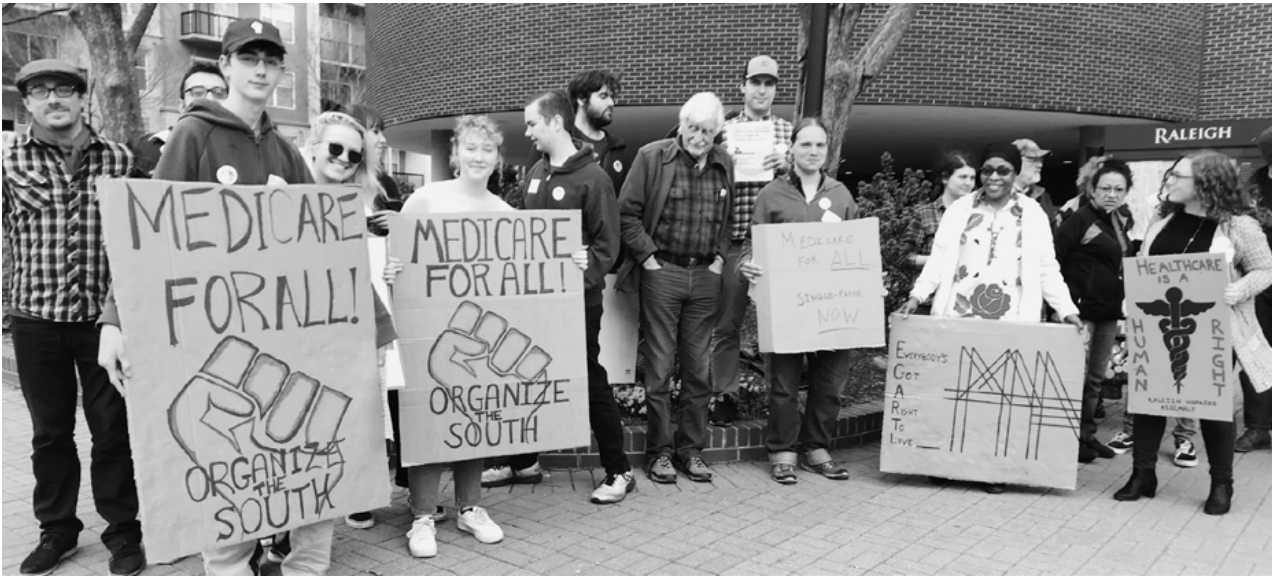 MEDICARE
FOR ALL!
ORGANIZE
THE
SOUTH
MEDICARE
FOR ALL!
ORGANIZE
THE
SOUTH
MEDICARE
FOR ALL
SINGLE-PAYER
NOW
EVERYBODY'S
GOT
A
RIGHT
TO
LIVE
RALEIGH
HEALTHCARE
IS A
HUMAN
RIGHT
RALEIGH WORKERS
ASSEMBLY